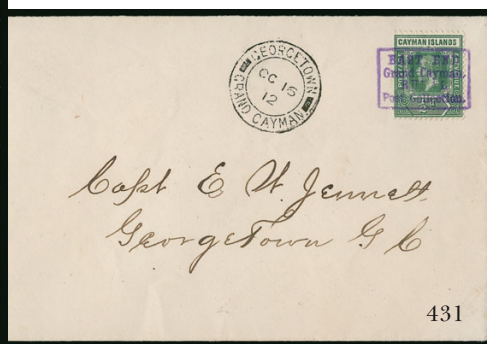 GEORGETOWN
OC 16
12
GRAND CAYMAN
CAYMAN ISLANDS
EAST END
Grand Cayman,
Post
Capt E W. Jennett.
Georgetown G C
431